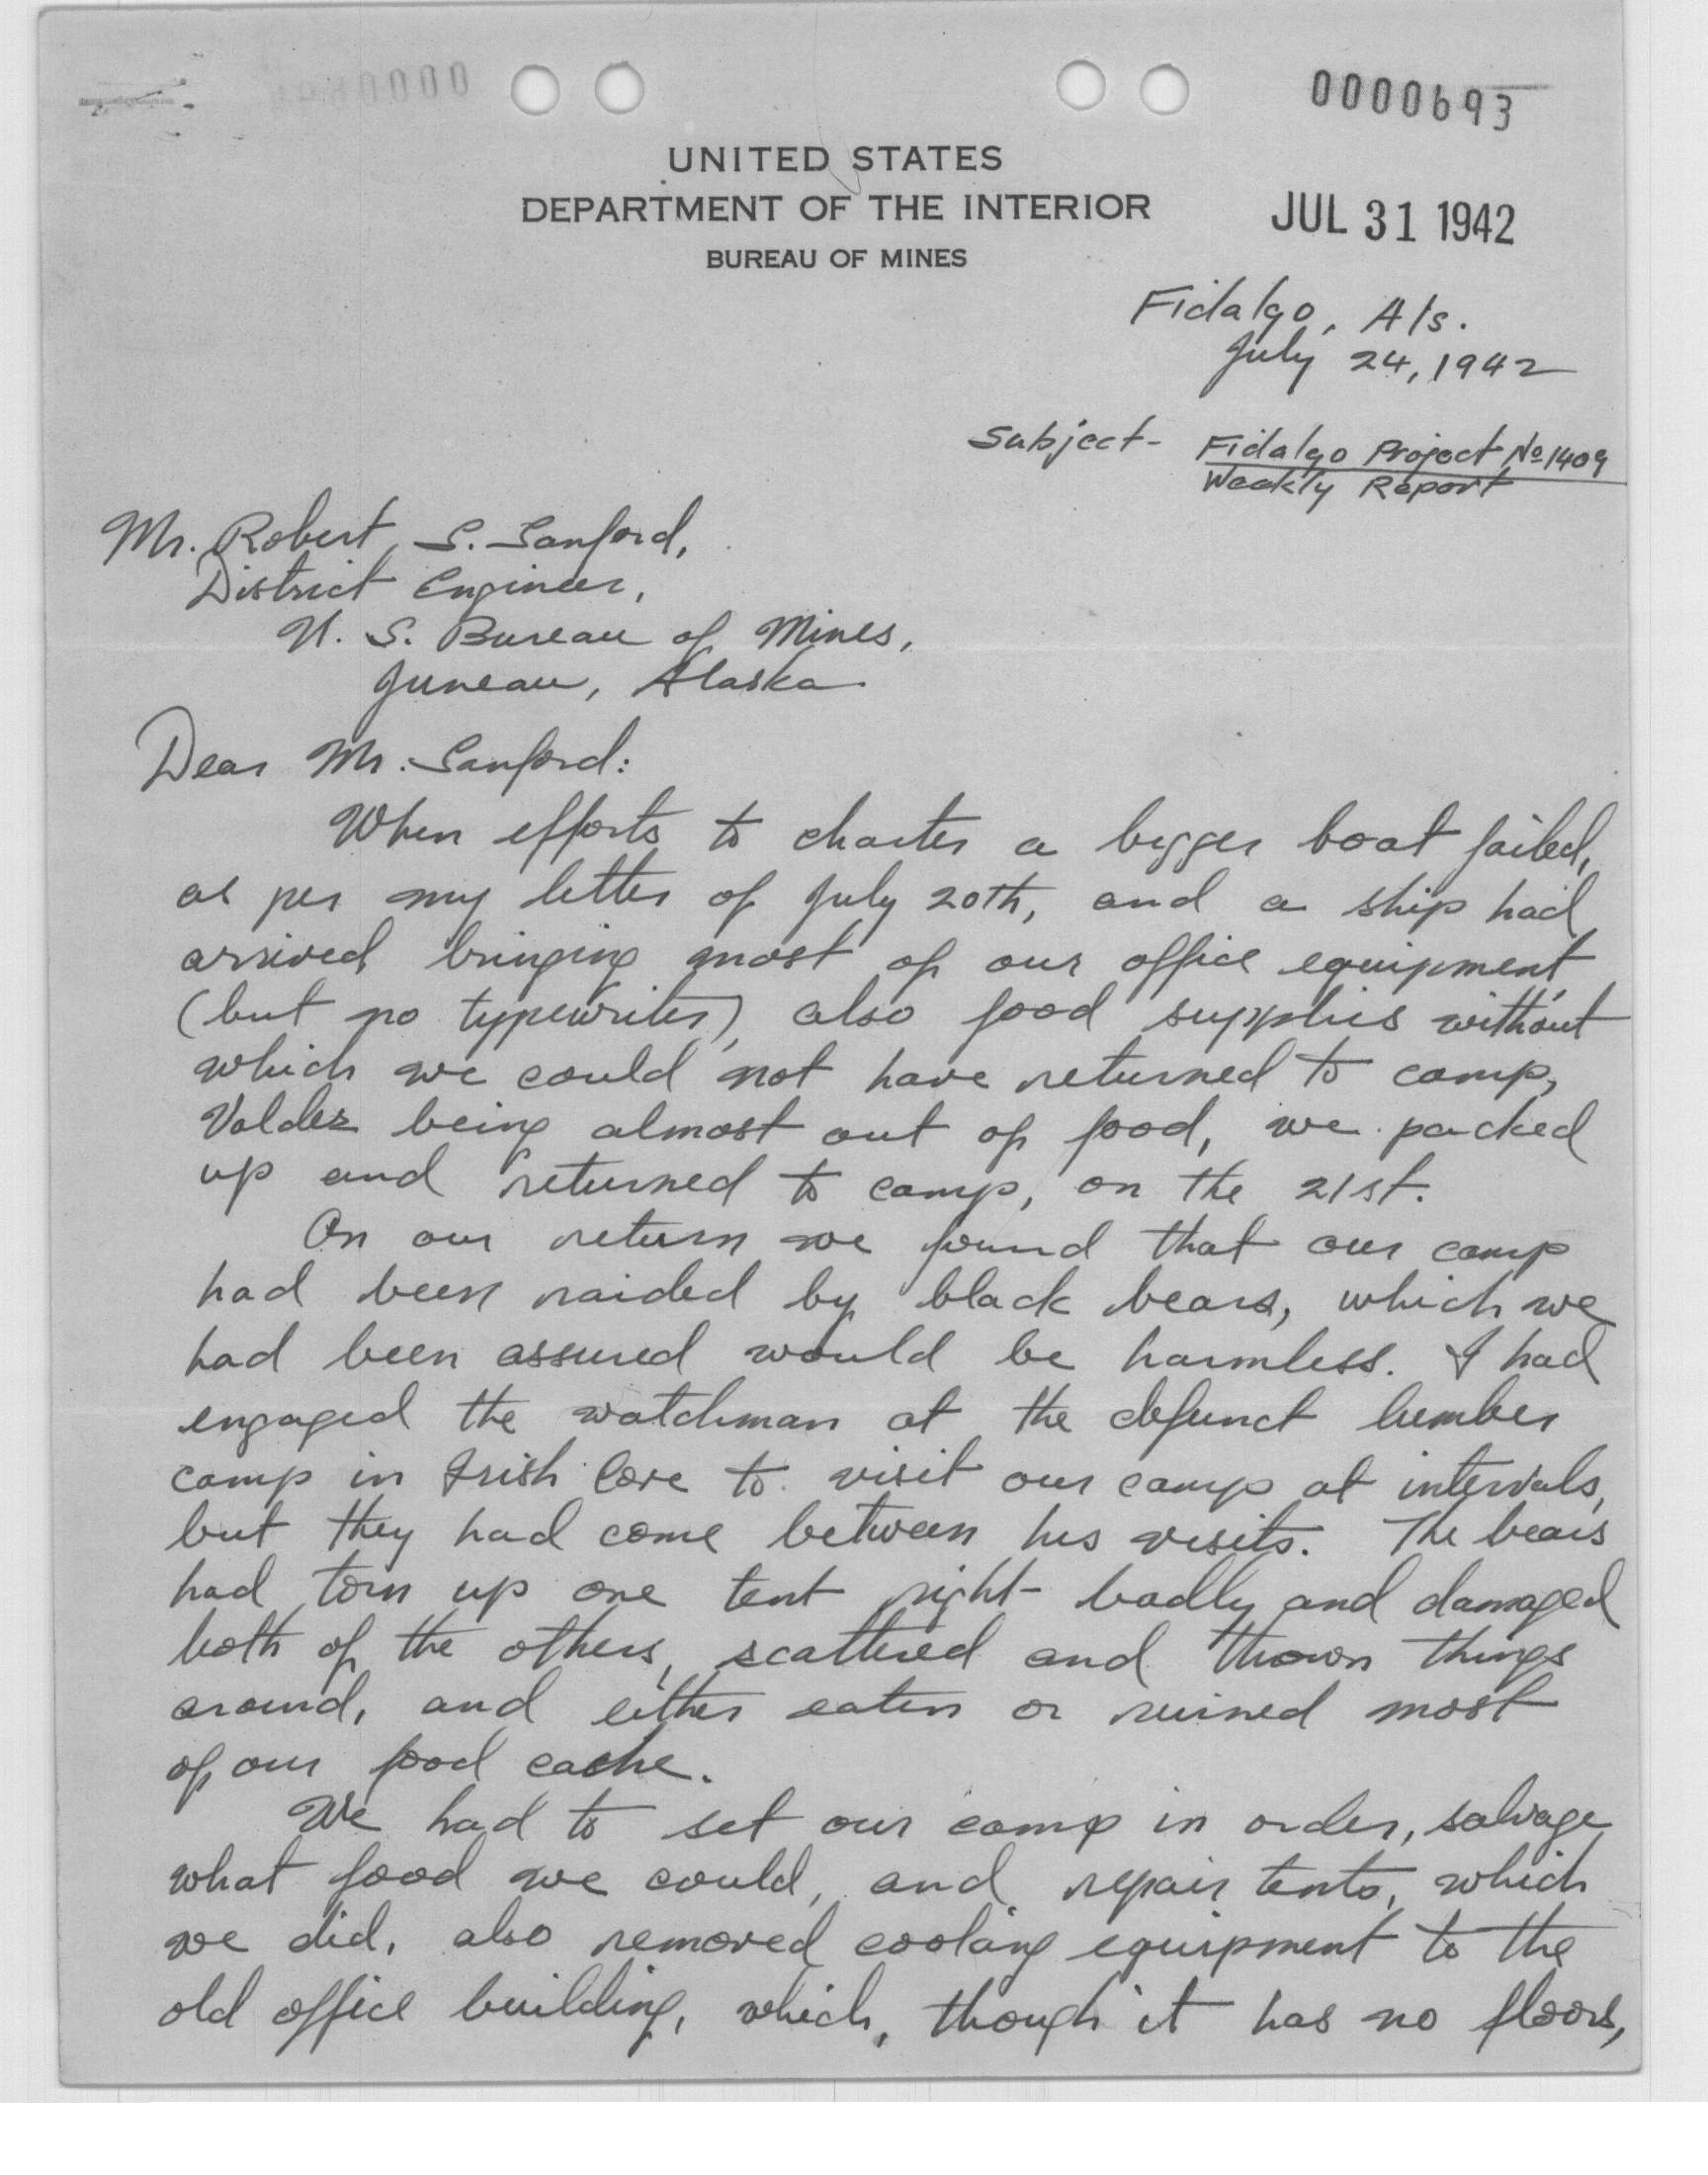 0000693
UNITED STATES
DEPARTMENT OF THE INTERIOR
BUREAU OF MINES
JUL 31 1942
Fidalgo, Als.
July 24, 1942
Subject- Fidalgo Project No 1409
Weekly Report
Mr. Robert S. Sanford,
District Engineer,
U. S. Bureau of Mines,
Juneau, Alaska.
Dear Mr. Sanford:
When efforts to charter a bigger boat failed,
as per my letter of July 20th, and a ship had
arrived bringing most of our office equipment
(but no typewriter), also food supplies without
which we could not have returned to camp,
Valdez being almost out of food, we packed
up and returned to camp, on the 21st.
On our return we found that our camp
had been raided by black bears, which we
had been assured would be harmless. I had
engaged the watchman at the defunct lumber
camp in Irish Cove to visit our camp at intervals,
but they had come between his visits. The bears
had torn up one tent right badly and damaged
both of the others, scattered and thrown things
around, and either eaten or ruined most
of our food cache.
We had to set our camp in order, salvage
what food we could, and repair tents, which
we did, also removed cooking equipment to the
old office building, which, though it has no floors,